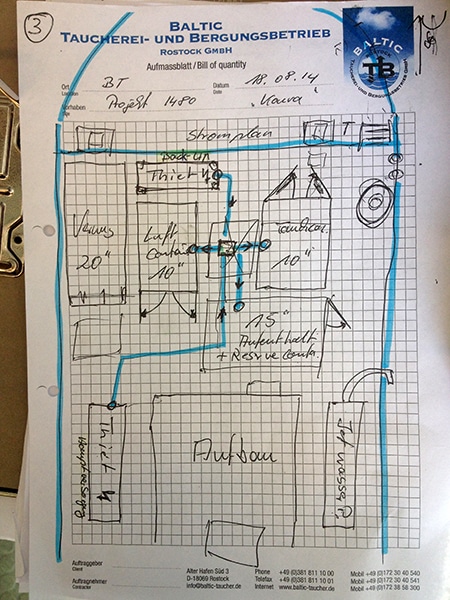 3
BALTIC
TAUCHEREI- UND BERGUNGSBETRIEB
ROSTOCK GMBH
BALTIC
TB
TAUCHEREI- UND BERGUNGSBETRIEB
Aufmassblatt / Bill of quantity
Ort
Location
BT
Datum
Date
18.08.14
Vorhaben
Projekt 1480
Stromplan
T
Back-Up
Thiet
20"
Luft
Contai
10"
10"
15"
Aufenthalt
+ Reserve Conta.
Thiet
Aufbau
Jetwasser P.
Auftraggeber
Client
Auftragnehmer
Contractor
Alter Hafen Süd 3
D-18069 Rostock
info@baltic-taucher.de
Phone +49 (0)381 811 10 00
Telefax +49 (0)381 811 10 01
Internet www.baltic-taucher.de
Mobil +49 (0)172 30 40 540
Mobil +49 (0)172 30 40 541
Mobil +49 (0)172 38 58 300